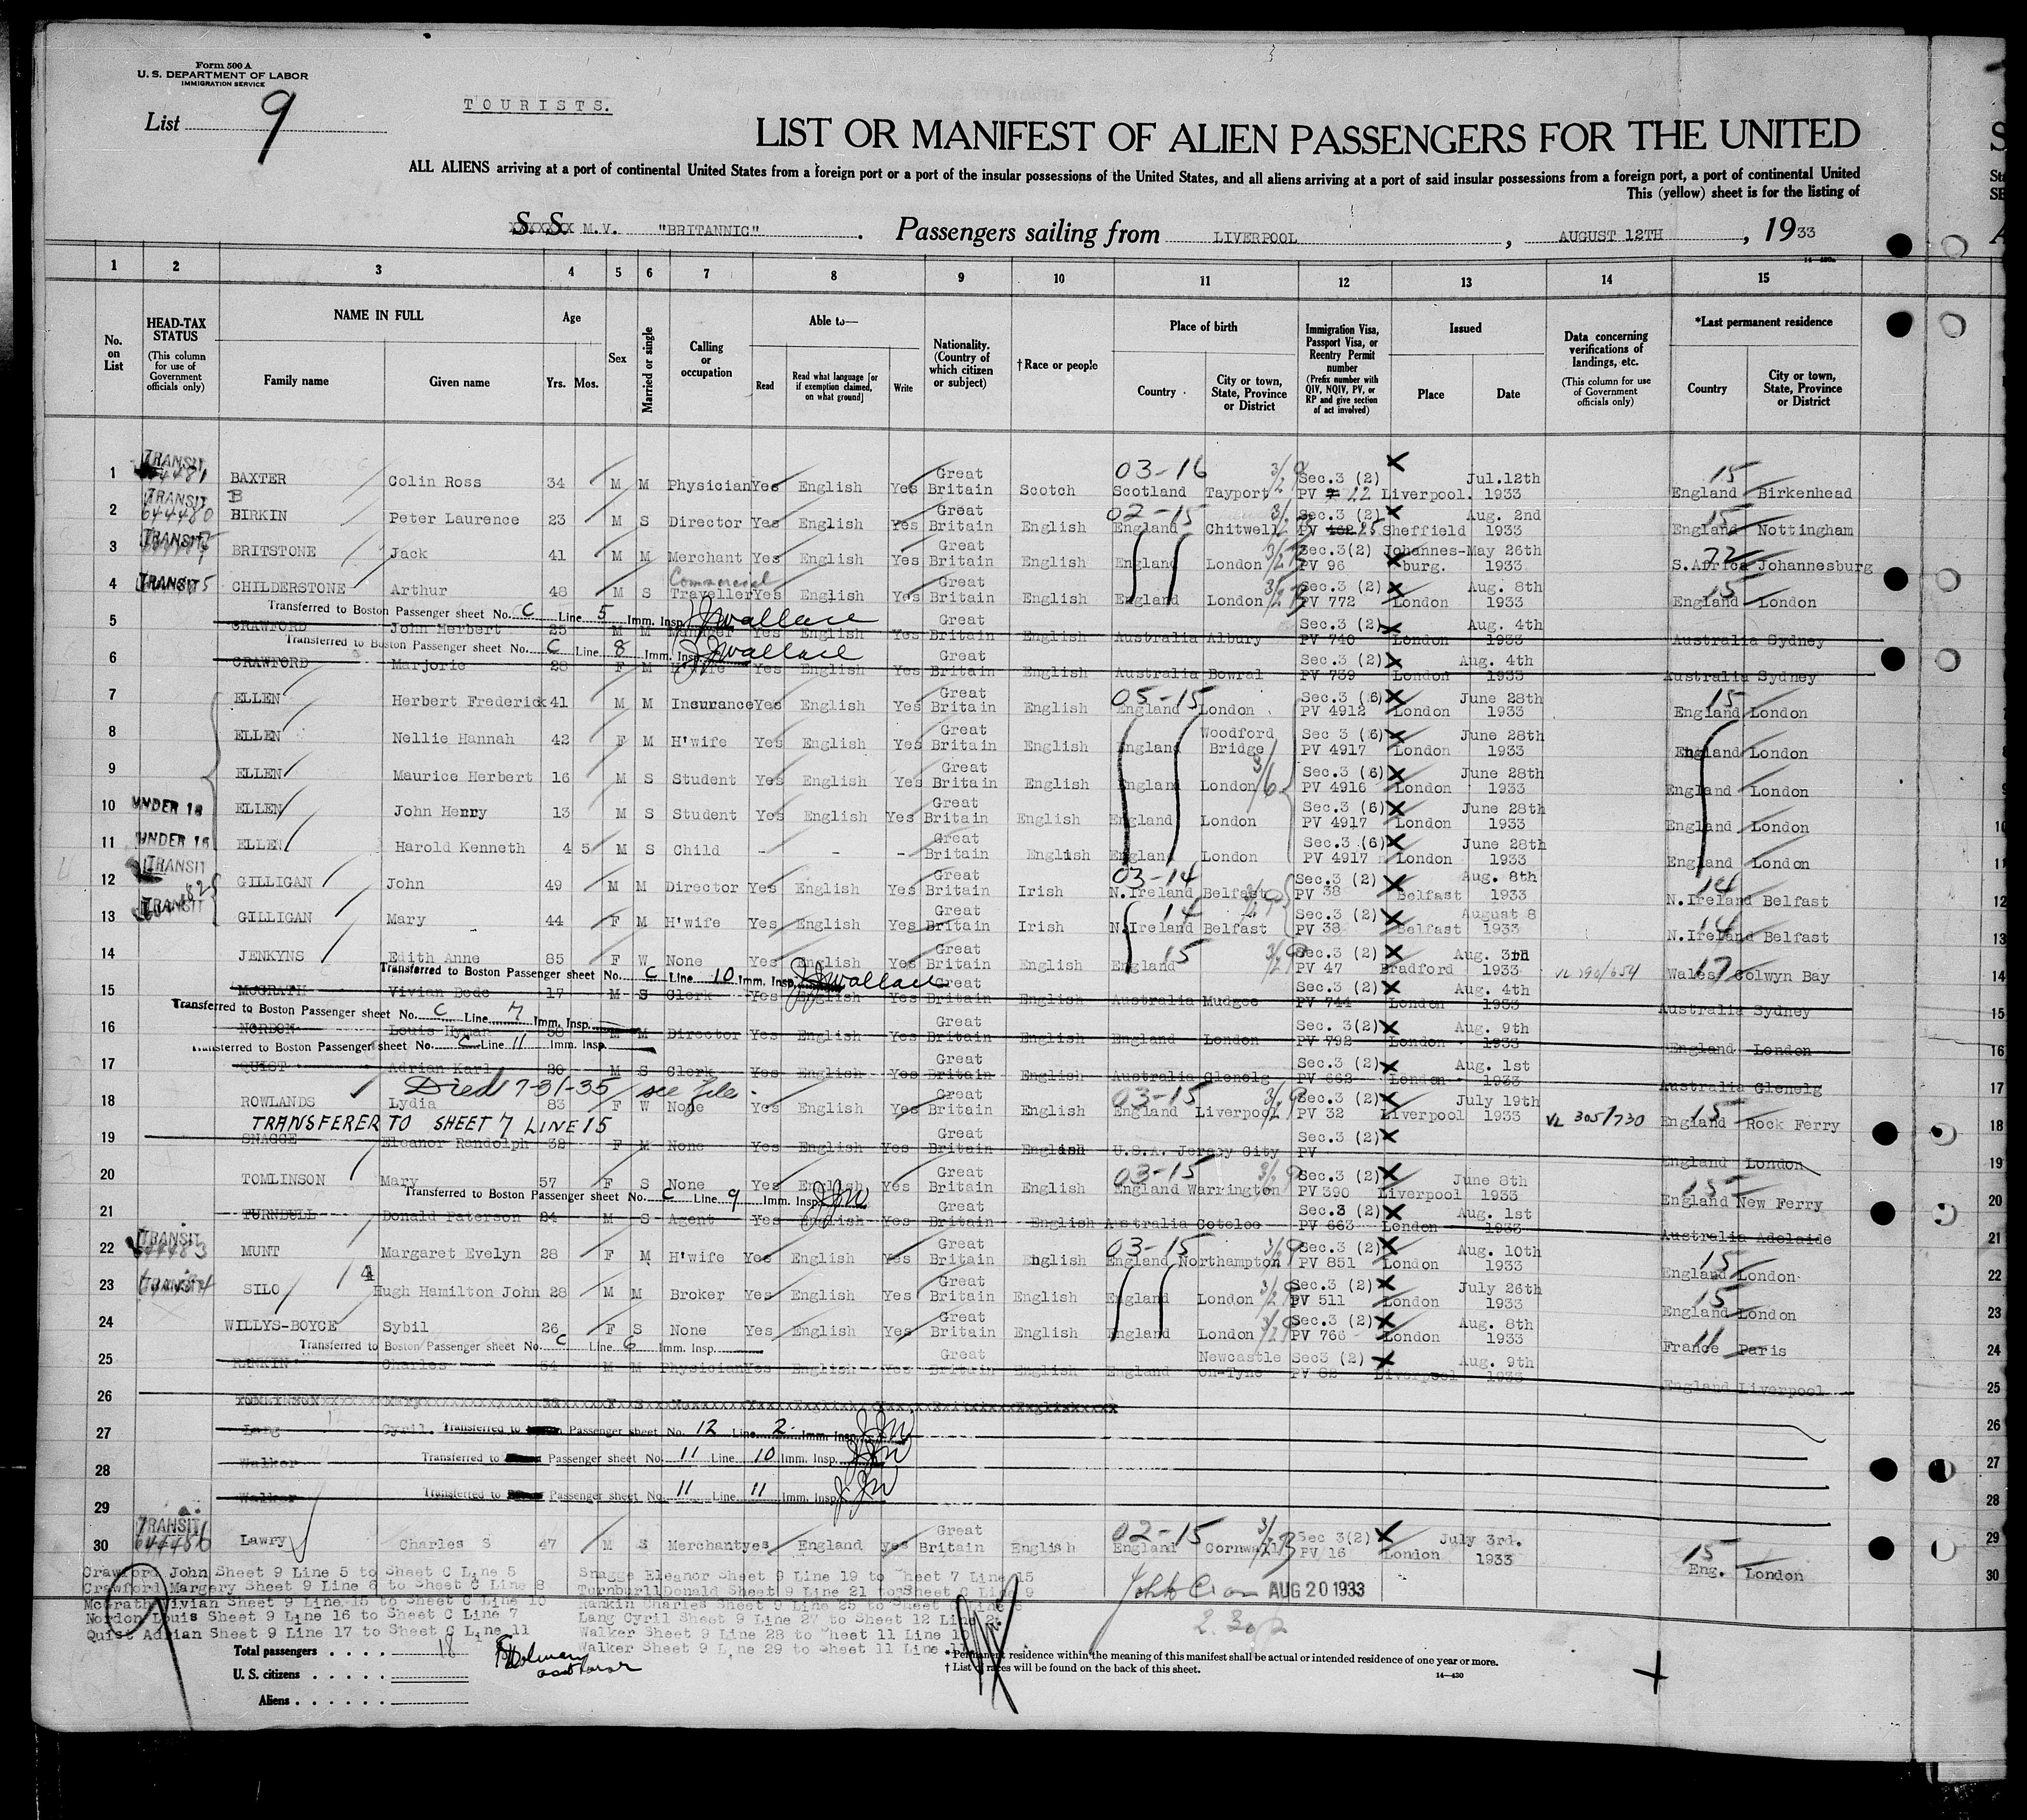 Form 500 A
U. S. DEPARTMENT OF LABOR
IMMIGRATION SERVICE
List 9
TOURISTS.
LIST OR MANIFEST OF ALIEN PASSENGERS FOR THE UNITED
ALL ALIENS arriving at a port of continental United States from a foreign port or a port of the insular possessions of the United States, and all aliens arriving at a port of said insular possessions from a foreign port, a port of continental United
This (yellow) sheet is for the listing of
S. S. M.V. "BRITANNIC". Passengers sailing from LIVERPOOL, AUGUST 12TH, 1933
1 2 3 4 5 6 7 8 9 10 11 12 13 14 15
No. on List
HEAD-TAX STATUS (This column for use of Government officials only)
NAME IN FULL Family name Given name
Age Yrs. Mos.
Sex
Married or single
Calling or occupation
Able to— Read Read what language [or if exemption claimed, on what ground] Write
Nationality. (Country of which citizen or subject)
† Race or people
Place of birth Country City or town, State, Province or District
Immigration Visa, Passport Visa, or Reentry Permit number (Prefix number with QIV, NQIV, PV, or RP and give section of act involved)
Issued Place Date
Data concerning verifications of landings, etc. (This column for use of Government officials only)
*Last permanent residence Country City or town, State, Province or District
1 TRANSIT BAXTER Colin Ross 34 M M Physician Yes English Yes Great Britain Scotch 03-16 Scotland Tayport Sec.3 (2) PV 22 Liverpool. Jul.12th 1933 15 England Birkenhead
2 TRANSIT 644480 BIRKIN Peter Laurence 23 M S Director Yes English Yes Great Britain English 02-15 England Chitwell Sec.3 (2) PV 25 Sheffield Aug. 2nd 1933 15 England Nottingham
3 TRANSIT BRITSTONE Jack 41 M M Merchant Yes English Yes Great Britain English England London Sec.3(2) PV 96 Johannes-burg. May 26th 1933 72 S.Africa Johannesburg
4 TRANSIT CHILDERSTONE Arthur 48 M S Commercial Traveller Yes English Yes Great Britain English England London Sec.3 (2) PV 772 London Aug. 8th 1933 15 England London
Transferred to Boston Passenger sheet No. C Line 5 Imm. Insp. JJWallace
5 CRAWFORD John Herbert 25 M M Manager Yes English Yes Great Britain English Australia Albury Sec.3 (2) PV 740 London Aug. 4th 1933 Australia Sydney
Transferred to Boston Passenger sheet No. C Line 8 Imm. Insp. JJWallace
6 CRAWFORD Marjorie 28 F M H'wife Yes English Yes Great Britain English Australia Bowral Sec.3 (2) PV 739 London Aug. 4th 1933 Australia Sydney
7 ELLEN Herbert Frederick 41 M M Insurance Yes English Yes Great Britain English 05-15 England London Sec.3 (6) PV 4912 London June 28th 1933 15 England London
8 ELLEN Nellie Hannah 42 F M H'wife Yes English Yes Great Britain English England Woodford Bridge Sec 3 (6) PV 4917 London June 28th 1933 England London
9 ELLEN Maurice Herbert 16 M S Student Yes English Yes Great Britain English England London Sec.3 (6) PV 4916 London June 28th 1933 England London
10 UNDER 16 ELLEN John Henry 13 M S Student Yes English Yes Great Britain English England London Sec.3 (6) PV 4917 London June 28th 1933 England London
11 UNDER 16 ELLEN Harold Kenneth 4 5 M S Child - - - Great Britain English England London Sec.3 (6) PV 4917 London June 28th 1933 England London
12 TRANSIT GILLIGAN John 49 M M Director Yes English Yes Great Britain Irish 03-14 N.Ireland Belfast Sec.3 (2) PV 38 Belfast Aug. 8th 1933 14 N.Ireland Belfast
13 TRANSIT GILLIGAN Mary 44 F M H'wife Yes English Yes Great Britain Irish 14 N.Ireland Belfast Sec.3 (2) PV 38 Belfast August 8 1933 14 N.Ireland Belfast
14 JENKYNS Edith Anne 85 F W None Yes English Yes Great Britain English 15 England Sec.3 (2) PV 47 Bradford Aug. 3rd 1933 17 Wales Colwyn Bay
Transferred to Boston Passenger sheet No. C Line 10 Imm. Insp. JJWallace
15 MCGRATH Vivian Bede 17 M S Clerk Yes English Yes Great Britain English Australia Mudgee Sec.3 (2) PV 744 London Aug. 4th 1933 Australia Sydney
Transferred to Boston Passenger sheet No. C Line 7 Imm. Insp.
16 NORDON Louis Hyman M M Director Yes English Yes Great Britain English England London Sec. 3(2) PV 792 London Aug. 9th 1933 England London
Transferred to Boston Passenger sheet No. C Line 11 Imm. Insp.
17 QUIST Adrian Karl 20 M S Clerk Yes English Yes Great Britain English Australia Glenelg Sec.3 (2) PV 662 London Aug. 1st 1933 Australia Glenelg
Died 7-31-35 see file.
18 ROWLANDS Lydia 83 F W None Yes English Yes Great Britain English 03-15 England Liverpool Sec.3 (2) PV 32 Liverpool July 19th 1933 VL 305/730 15 England Rock Ferry
TRANSFERER TO SHEET 7 LINE 15
19 SNAGGE Eleanor Randolph 38 F M None Yes English Yes Great Britain English U.S.A. Jersey City Sec.3 (2) PV England London
20 TOMLINSON Mary 57 F S None Yes English Yes Great Britain English 03-15 England Warrington Sec.3 (2) PV 390 Liverpool June 8th 1933 15 England New Ferry
Transferred to Boston Passenger sheet No. C Line 9 Imm. Insp. JJW
21 TURNBULL Donald Paterson 24 M S Agent Yes English Yes Great Britain English Australia Cotelee Sec.3 (2) PV 663 London Aug. 1st 1933 Australia Adelaide
22 TRANSIT MUNT Margaret Evelyn 28 F M H'wife Yes English Yes Great Britain English 03-15 England Northampton Sec.3 (2) PV 851 London Aug. 10th 1933 15 England London
23 TRANSIT SILO Hugh Hamilton John 28 M M Broker Yes English Yes Great Britain English England London Sec.3 (2) PV 511 London July 26th 1933 15 England London
24 WILLYS-BOYCE Sybil 26 F S None Yes English Yes Great Britain English England London Sec.3 (2) PV 766 London Aug. 8th 1933 11 France Paris
Transferred to Boston Passenger sheet No. C Line 6 Imm. Insp.
25 RANKIN Charles 54 M M Physician Yes English Yes Great Britain English England Newcastle on-Tyne Sec3 (2) PV 82 Liverpool Aug. 9th 1933 England Liverpool
26 TOMLINSON Mary
27 Lang Cyril. Transferred to Passenger sheet No. 12 Line 2 Imm. Insp. JJW
28 Walker Transferred to Passenger sheet No. 11 Line 10 Imm. Insp. JJW
29 Walker Transferred to Passenger sheet No. 11 Line 11 Imm. Insp. JJW
30 TRANSIT 644486 Lawry Charles S 47 M S Merchant yes England yes Great Britain English 02-15 England Cornwall Sec 3(2) PV 16 London July 3rd. 1933 15 Eng. London
Crawford John Sheet 9 Line 5 to Sheet C Line 5
Crawford Margery Sheet 9 Line 6 to Sheet C Line 8
McGrath Vivian Sheet 9 Line 15 to Sheet C Line 10
Nordon Louis Sheet 9 Line 16 to Sheet C Line 7
Quist Adrian Sheet 9 Line 17 to Sheet C Line 11
Snagge Eleanor Sheet 9 Line 19 to Sheet 7 Line 15
Turnbull Donald Sheet 9 Line 21 to Sheet C Line 9
Rankin Charles Sheet 9 Line 25 to Sheet C Line 6
Lang Cyril Sheet 9 Line 27 to Sheet 12 Line 2
Walker Sheet 9 Line 28 to Sheet 11 Line 10
Walker Sheet 9 Line 29 to Sheet 11 Line 11
AUG 20 1933
2.30p
Total passengers 18
U. S. citizens
Aliens
* Permanent residence within the meaning of this manifest shall be actual or intended residence of one year or more.
† List of races will be found on the back of this sheet.
14—430